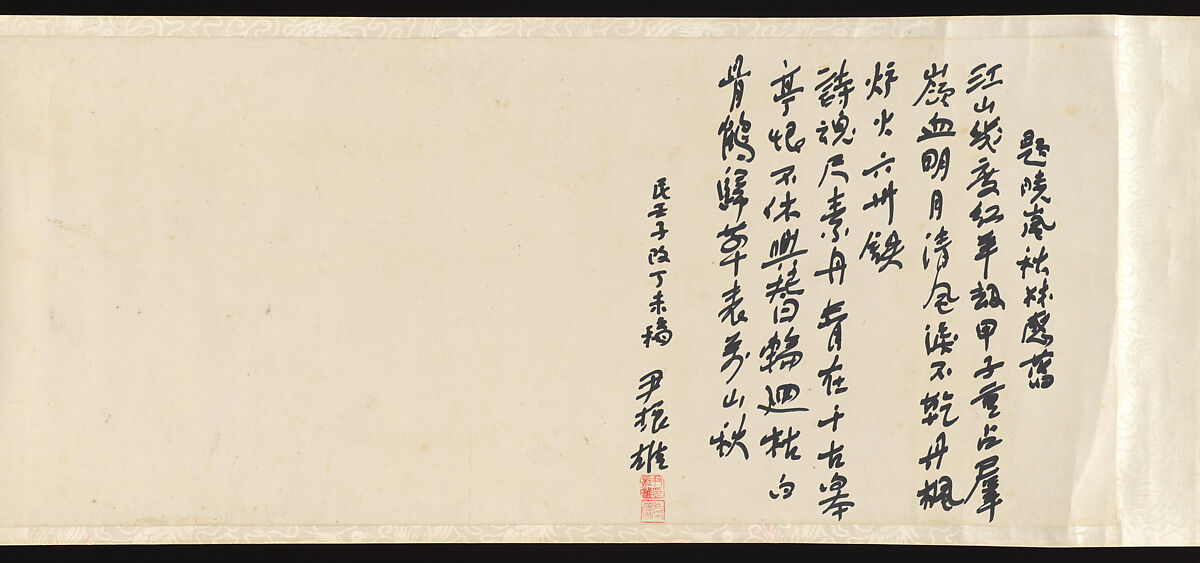 題曉嵐秋林感舊
江山幾度紅羊劫甲子重占羣
嶺血明月清風淚不乾丹楓
炉火六州鐵
詩魂尺素丹青在千古皋
亭恨不休興替輪迴枯白
骨鶴歸華表萬山秋
民壬子改丁未稿 尹振雄